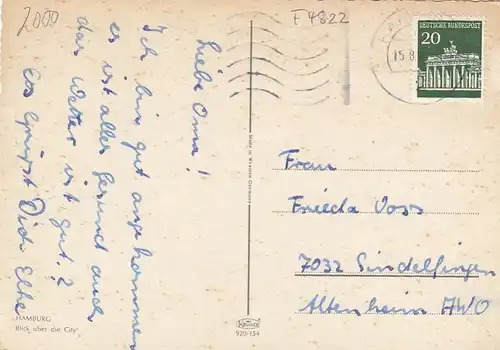 2000
F 4822
Liebe Oma!
Ich bin gut angekommen
es ist alles gesund auch
das Wetter ist gut.?
Es grüßt Dich Elke
HAMBURG
Blick über die City
KRÜGER
920/154
DEUTSCHE BUNDESPOST
20
15.8.
Frau
Frieda Voss
7032 Sindelfingen
Altenheim AWO